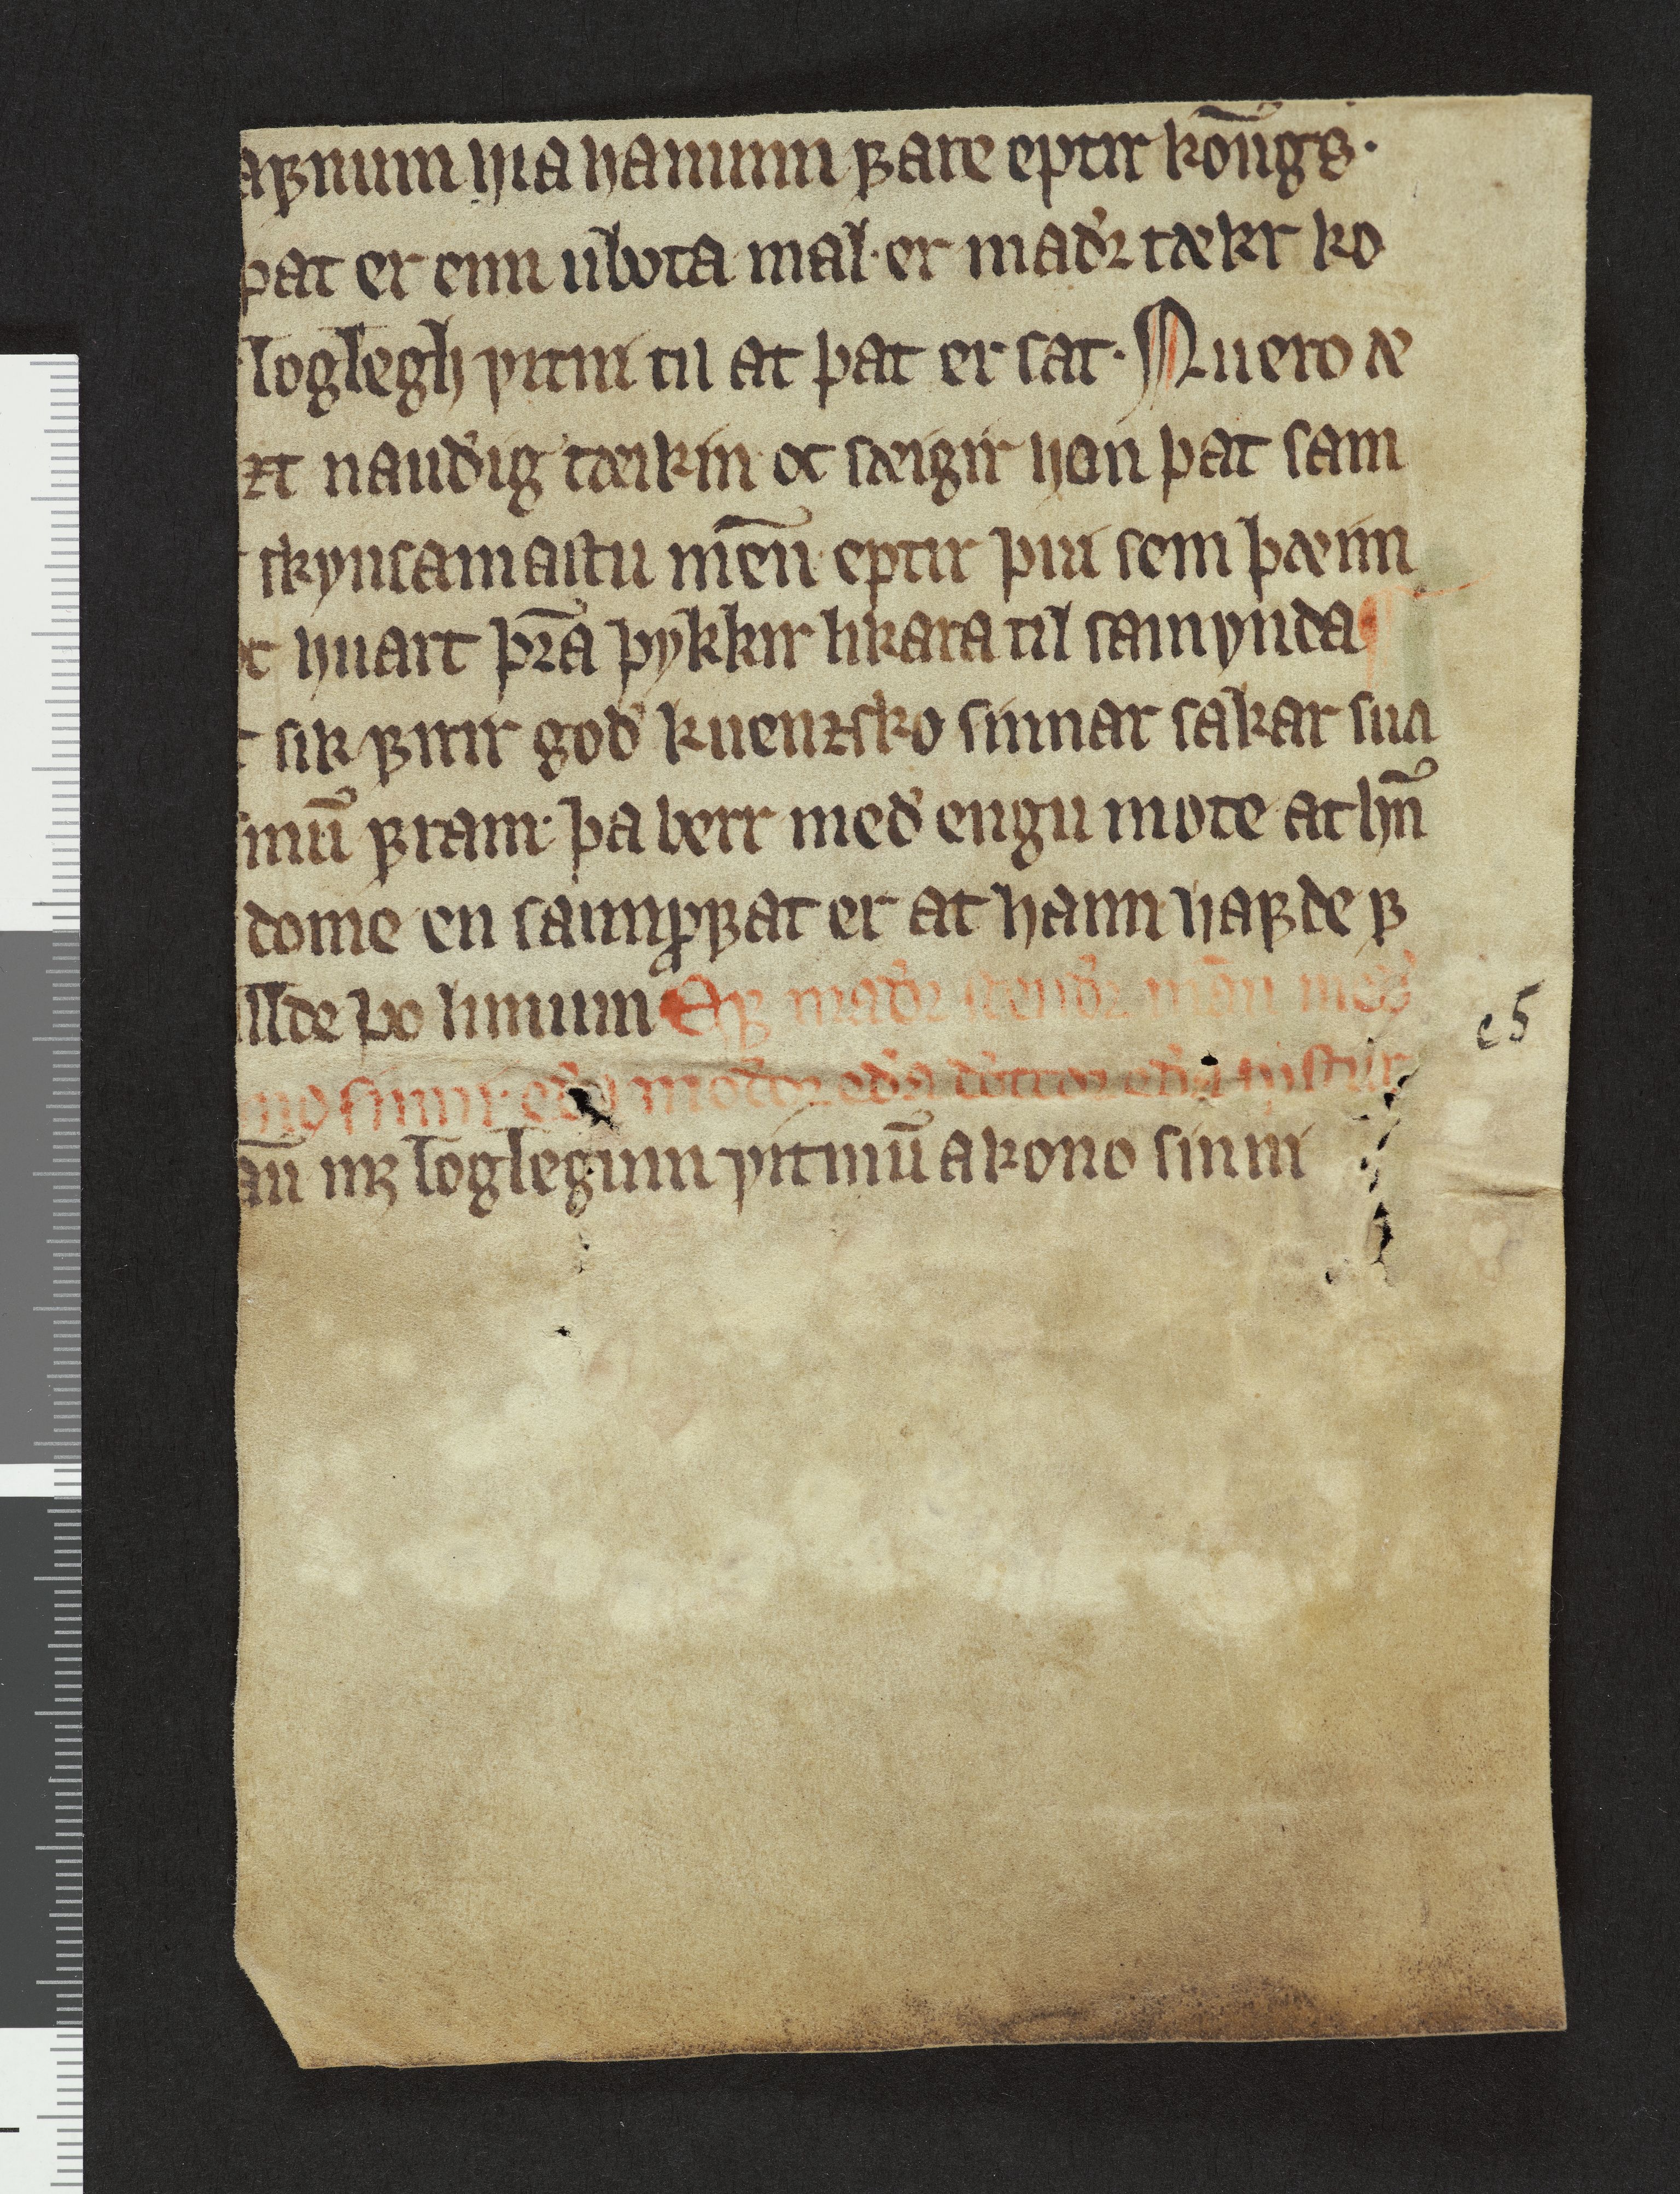 aꝼnum hia hanumm ꝼare eptir ko̅ngs·
þat er enn ubota mal· er maðꝛ tækr ko
loglegh vitni til at þat er sat· Nu ero æ
ꝛt nauðig tæikin oc sæigir hon þat sam
skynsamastu me̅n eptir þui sem þæim
oc huart þꝛa̅ þykkir likara til samynda
sik ꝼirir goð kuenꝛsko sinnar sakar sua
inu̅ ꝼram· þa berr með engu mote at hn̅
dome en sannpꝛoꝼat er at hann haꝼde ꝼ
llde þo hinum Eꝼ maðꝛ stendꝛ man̅ með
no sinni· eða moðoꝛ eða dottoꝛ eða systur
an̅ mꝫ loglegum vitnu̅ a kono sinni
c5